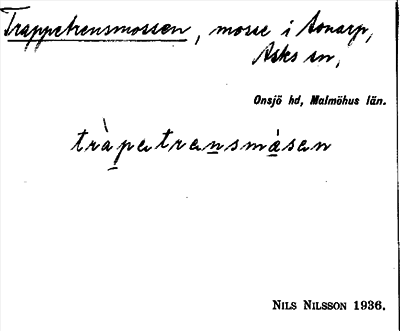 Trappetrensmossen, mosse i Aonarp,
Asks sn,
Onsjö hd, Malmöhus län.
tràpatrensmåsen
NILS NILSSON 1936.